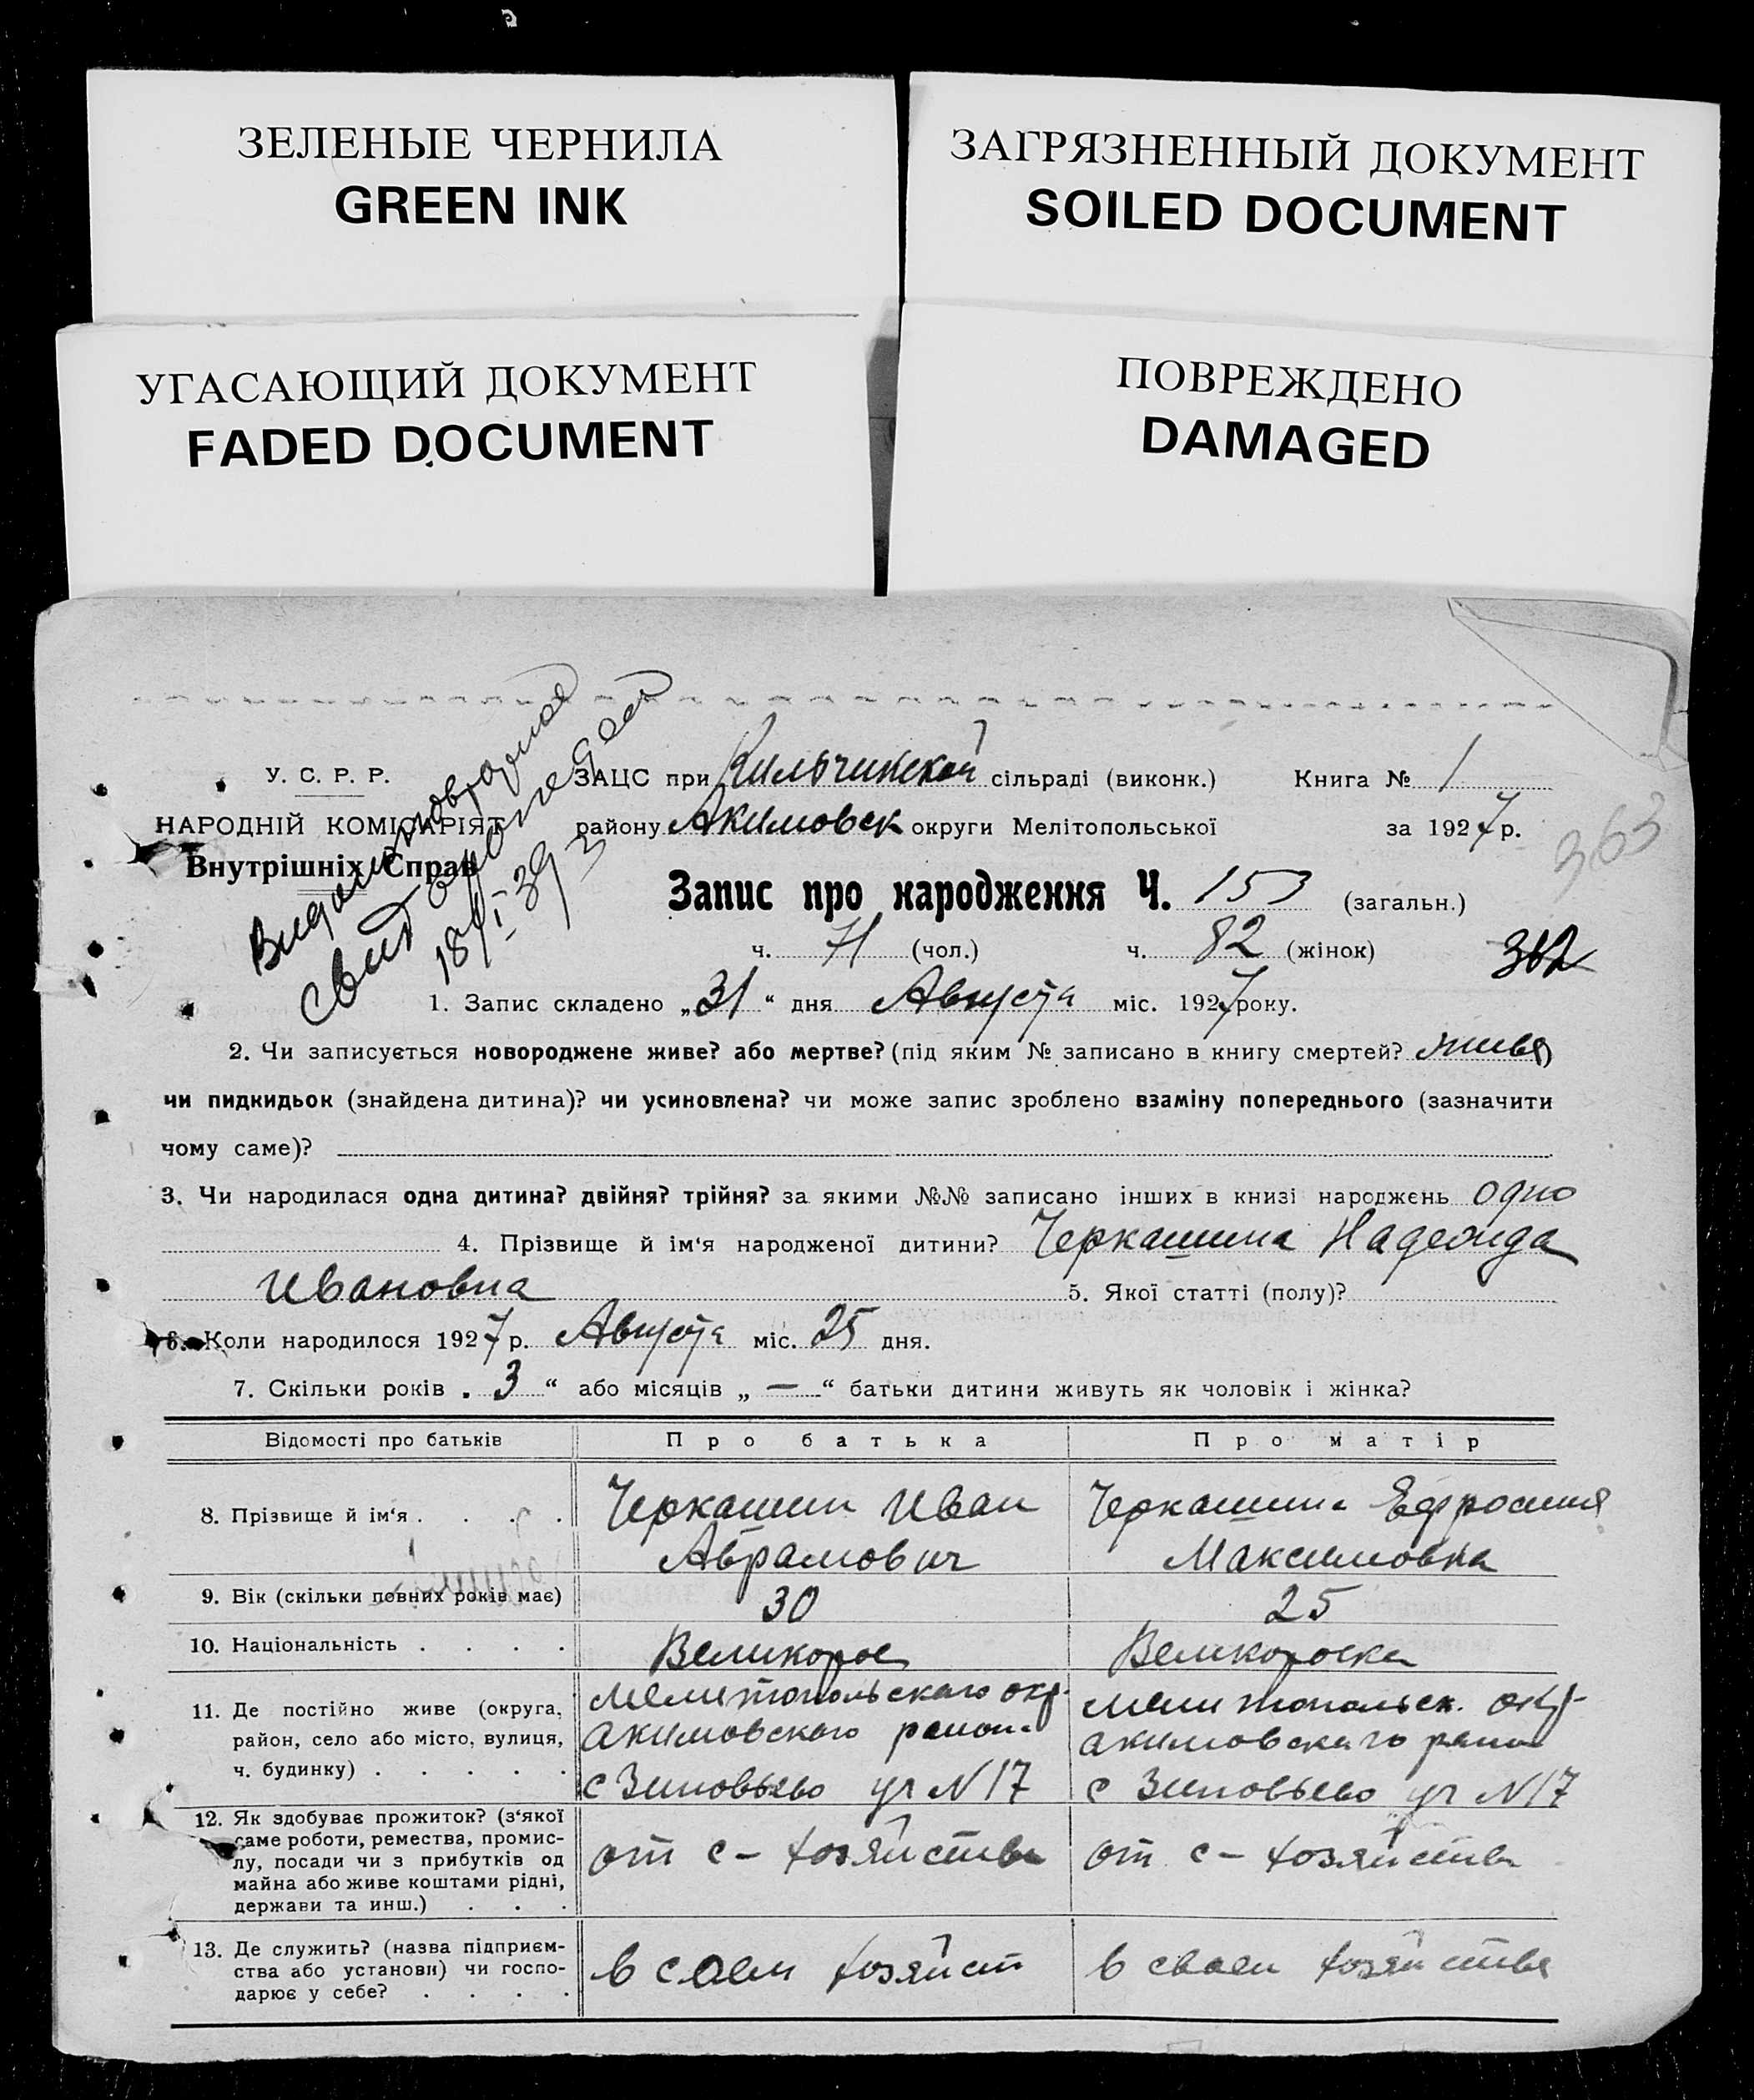 ЗЕЛЕНЫЕ ЧЕРНИЛА
GREEN INK
ЗАГРЯЗНЕННЫЙ ДОКУМЕНТ
SOILED DOCUMENT
УГАСАЮЩИЙ ДОКУМЕНТ
FADED DOCUMENT
ПОВРЕЖДЕНО
DAMAGED
У. С. Р. Р.
НАРОДНІЙ КОМІСАРІЯТ
Внутрішніх Справ
свид
18/I-39
ЗАЦС при Кильчинской сільраді (виконк.) Книга № 1
району Акимовск округи Мелітопольської за 1927 р.
363
Запис про народження Ч. 153 (загальн.)
ч. 71 (чол.) ч. 82 (жінок)
362
1. Запис складено „31“ дня Августа міс. 1927 року.
2. Чи записується новороджене живе? або мертве? (під яким № записано в книгу смертей?
чи пидкидьок (знайдена дитина)? чи усиновлена? чи може запис зроблено взаміну попереднього (зазначити
чому саме)?
3. Чи народилася одна дитина? двійня? трійня? за якими №№ записано інших в книзі народжень одно
4. Прізвище й ім‘я народженої дитини? Черкашина Надежда
Ивановна 5. Якої статті (полу)?
6. Коли народилося 1927 р. Августа міс. 25 дня.
7. Скільки років „3“ або місяців „—“ батьки дитини живуть як чоловік і жінка?
Відомості про батьків Про батька Про матір
8. Прізвище й ім‘я . . . . Черкашин Иван Черкашина Ефросиния
Аврамович Максимовна
9. Вік (скільки повних років має) 30 25
10. Національність . . . . Великорос Великороска
11. Де постійно живе (округа, Мелитопольского окр. Мелитопольск. окр.
район, село або місто, вулиця, Акимовского район Акимовского район
ч. будинку) . . . . . с Зиновьево уч N 17 с Зиновьево уч N 17
12. Як здобуває прожиток? (з‘якої
саме роботи, ремества, промис-
лу, посади чи з прибутків од от с - хозяйства от с - хозяйства
майна або живе коштами рідні,
держави та инш.) . . .
13. Де служить? (назва підприєм-
ства або установи) чи госпо- в своем хозяйст в своем хозяйстве
дарює у себе? . . . .